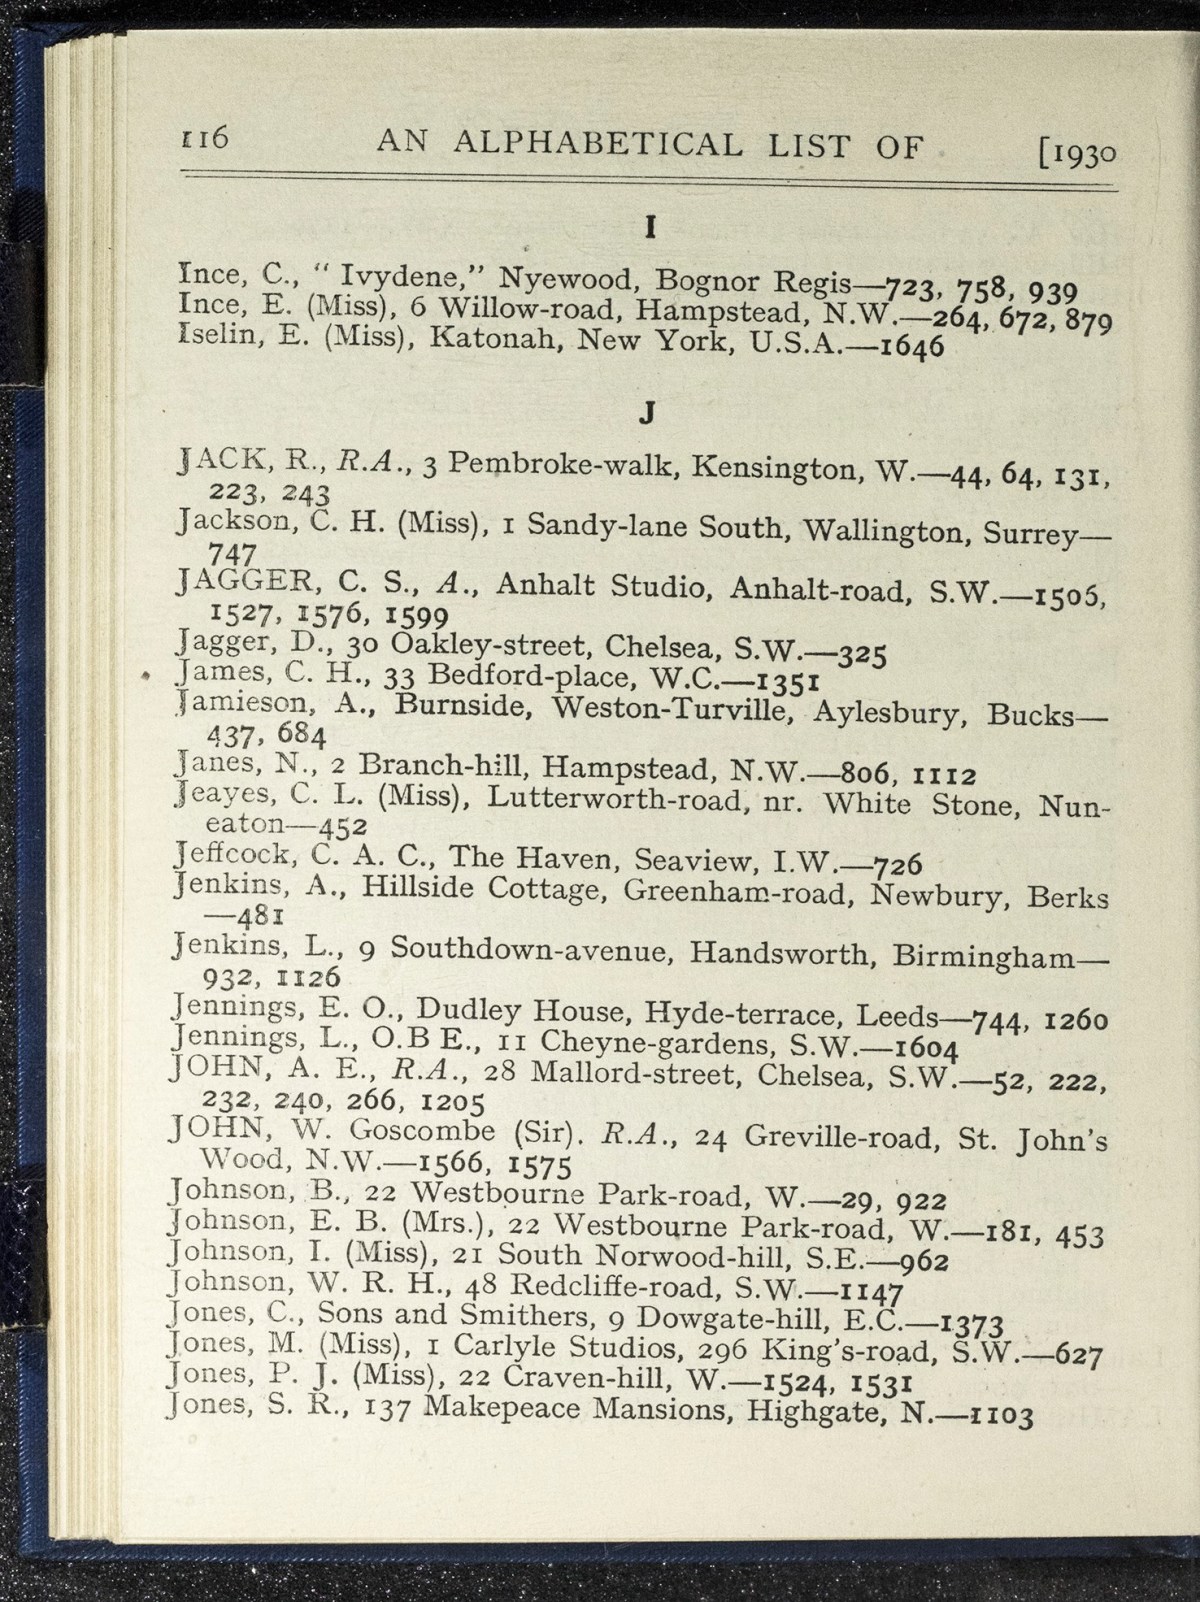 116 AN ALPHABETICAL LIST OF [1930
I
Ince, C., “ Ivydene,” Nyewood, Bognor Regis—723, 758, 939
Ince, E. (Miss), 6 Willow-road, Hampstead, N.W.—264, 672, 879
Iselin, E. (Miss), Katonah, New York, U.S.A.—1646
J
JACK, R., R.A., 3 Pembroke-walk, Kensington, W.—44, 64, 131,
223, 243
Jackson, C. H. (Miss), 1 Sandy-lane South, Wallington, Surrey—
747
JAGGER, C. S., A., Anhalt Studio, Anhalt-road, S.W.—1506,
1527, 1576, 1599
Jagger, D., 30 Oakley-street, Chelsea, S.W.—325
James, C. H., 33 Bedford-place, W.C.—1351
Jamieson, A., Burnside, Weston-Turville, Aylesbury, Bucks—
437, 684
Janes, N., 2 Branch-hill, Hampstead, N.W.—806, 1112
Jeayes, C. L. (Miss), Lutterworth-road, nr. White Stone, Nun-
eaton—452
Jeffcock, C. A. C., The Haven, Seaview, I.W.—726
Jenkins, A., Hillside Cottage, Greenham-road, Newbury, Berks
—481
Jenkins, L., 9 Southdown-avenue, Handsworth, Birmingham—
932, 1126
Jennings, E. O., Dudley House, Hyde-terrace, Leeds—744, 1260
Jennings, L., O.B E., 11 Cheyne-gardens, S.W.—1604
JOHN, A. E., R.A., 28 Mallord-street, Chelsea, S.W.—52, 222,
232, 240, 266, 1205
JOHN, W. Goscombe (Sir). R.A., 24 Greville-road, St. John’s
Wood, N.W.—1566, 1575
Johnson, B., 22 Westbourne Park-road, W.—29, 922
Johnson, E. B. (Mrs.), 22 Westbourne Park-road, W.—181, 453
Johnson, I. (Miss), 21 South Norwood-hill, S.E.—962
Johnson, W. R. H., 48 Redcliffe-road, S.W.—1147
Jones, C., Sons and Smithers, 9 Dowgate-hill, E.C.—1373
Jones, M. (Miss), 1 Carlyle Studios, 296 King’s-road, S.W.—627
Jones, P. J. (Miss), 22 Craven-hill, W.—1524, 1531
Jones, S. R., 137 Makepeace Mansions, Highgate, N.—1103